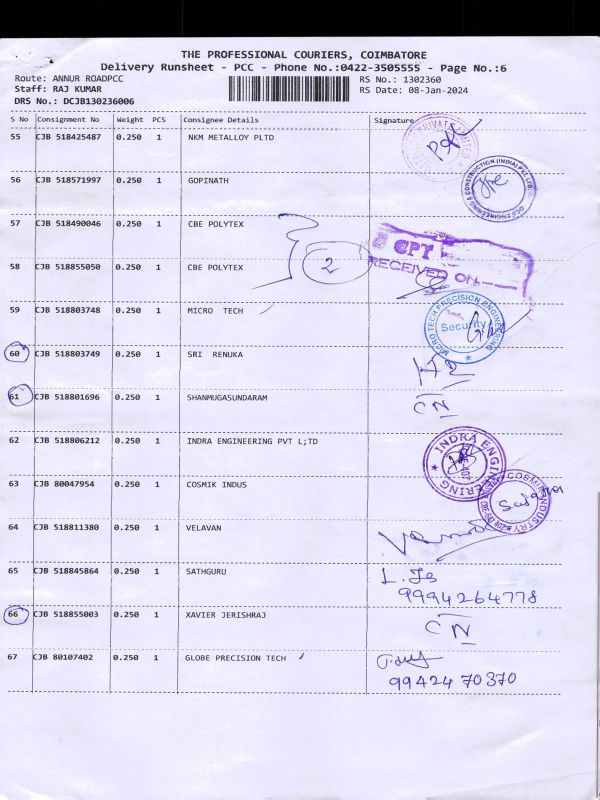 THE PROFESSIONAL COURIERS, COIMBATORE
Delivery Runsheet - PCC - Phone No.:0422-3505555 - Page No.:6
Route: ANNUR ROADPCC
RS No.: 1302360
Staff: RAJ KUMAR
RS Date: 08-Jan-2024
DRS No.: DCJB130236006
S No Consignment No Weight PCS Consignee Details Signature
55 CJB 518425487 0.250 1 NKM METALLOY PLTD
56 CJB 518571997 0.250 1 GOPINATH
OCG ENGINEERING & CONSTRUCTION (INDIA) PVT LTD.
57 CJB 518490046 0.250 1 CBE POLYTEX
2
CPT
RECEIVED ON
58 CJB 518855050 0.250 1 CBE POLYTEX
59 CJB 518803748 0.250 1 MICRO TECH
MICRO TECH PRECISION ENGINEERING
Security
60 CJB 518803749 0.250 1 SRI RENUKA
61 CJB 518801696 0.250 1 SHANMUGASUNDARAM
CN
62 CJB 518806212 0.250 1 INDRA ENGINEERING PVT L;TD
INDRA ENGINEERING
63 CJB 80047954 0.250 1 COSMIK INDUS
COSMIK INDUSTRY
64 CJB 518811380 0.250 1 VELAVAN
65 CJB 518845864 0.250 1 SATHGURU
9994264778
66 CJB 518855003 0.250 1 XAVIER JERISHRAJ
CN
67 CJB 80107402 0.250 1 GLOBE PRECISION TECH
99424 70370